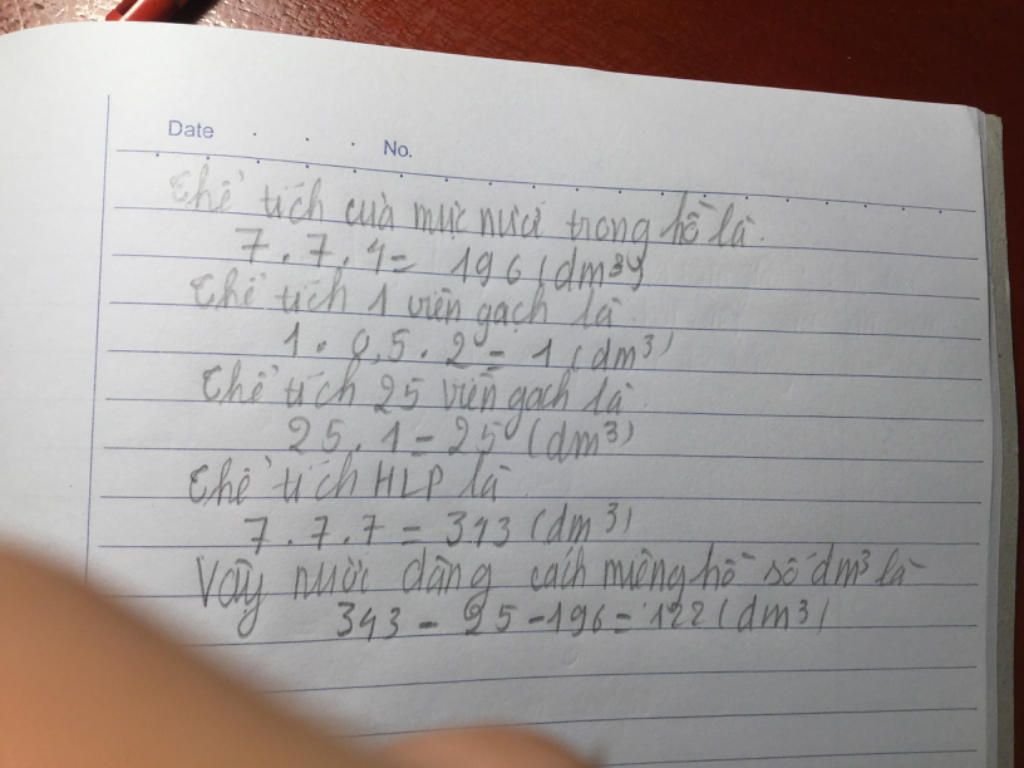 Date . . . No.
Thể tích của mực nươ trong hồ là.
7.7.4= 196 (dm³)
Thể tích 1 viên gạch là
1.0,5.2 = 1 (dm³)
Thể tích 25 viên gạch là
25.1 = 25 (dm³)
Thể tích HLP là
7.7.7 = 343 (dm³)
Vậy nười dâng cách miêng hồ số dm³ là
343 - 25 - 196 = 122 (dm³)